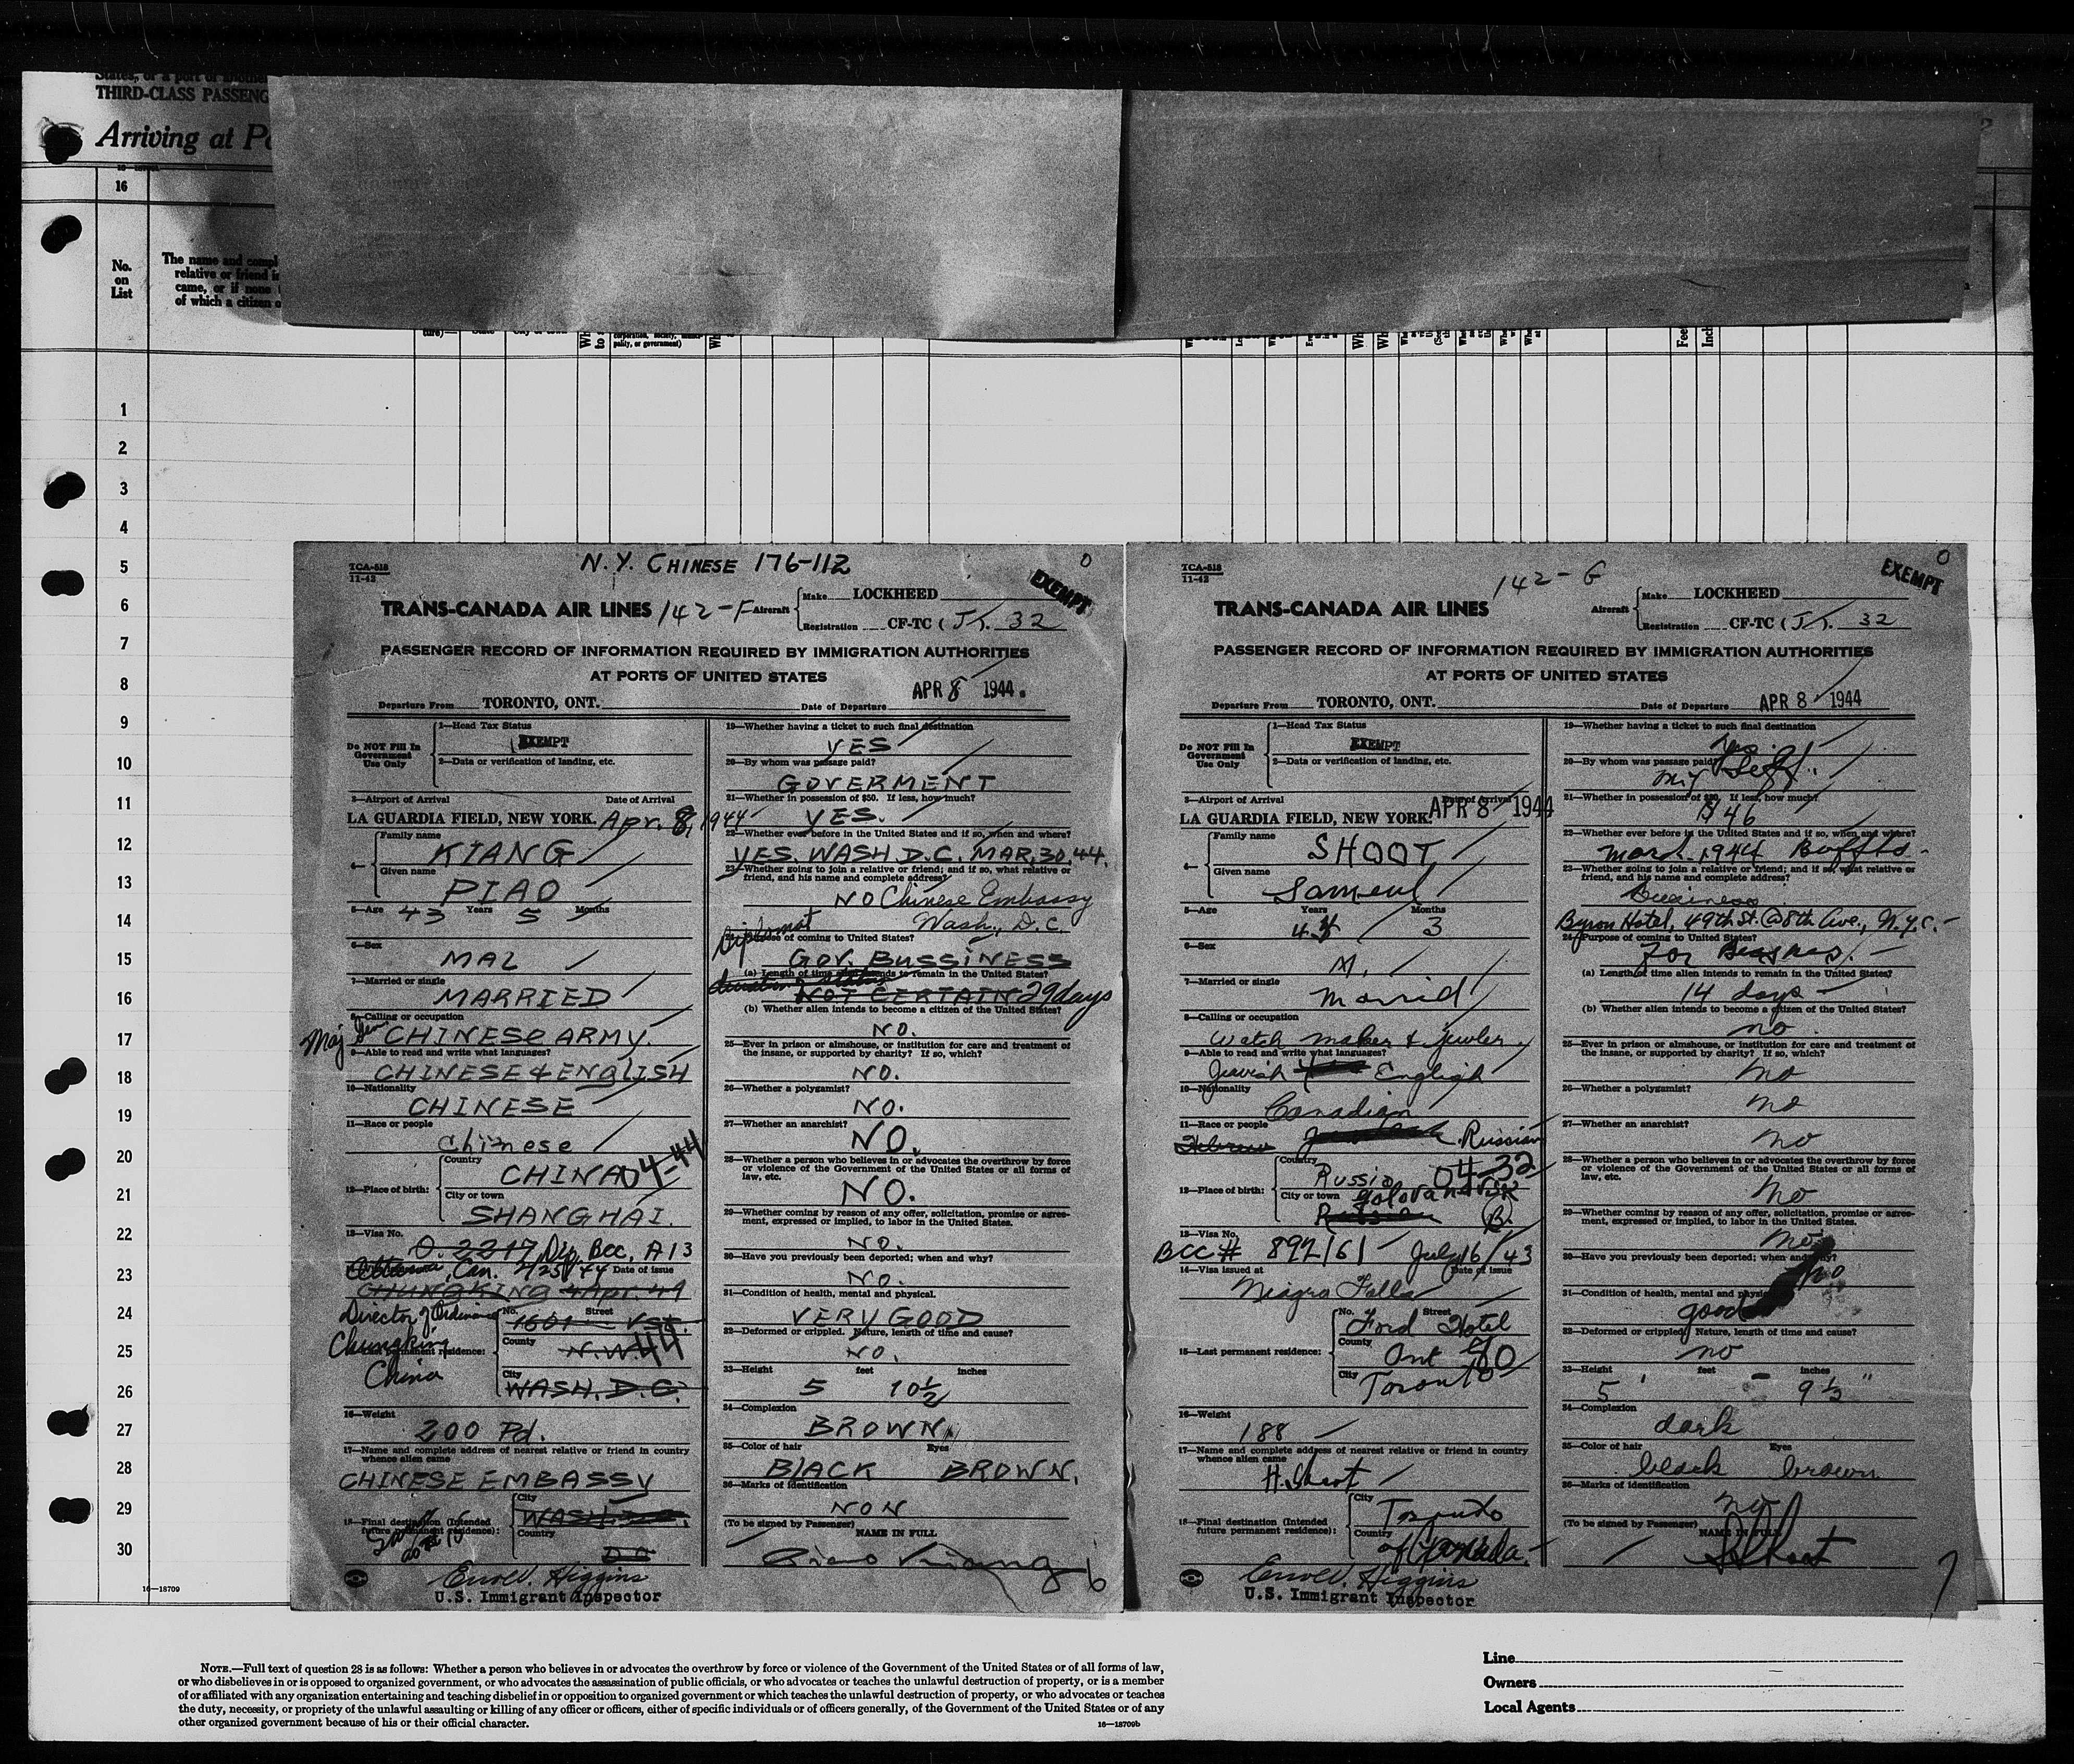 THIRD-CLASS PASSENG
Arriving at Po
16
No.
on
List
The name and compl
relative or friend i
came, or if none
of which a citizen o
ture)—
pality, or government)
1
2
3
4
5
6
7
8
9
10
11
12
13
14
15
16
17
18
19
20
21
22
23
24
25
26
27
28
29
30
16—18709
N.Y. CHINESE 176-112
0
TCA-518
11-42
EXEMPT
TRANS-CANADA AIR LINES 142-F Aircraft
Make LOCKHEED
Registration CF-TC ( J T. 32
PASSENGER RECORD OF INFORMATION REQUIRED BY IMMIGRATION AUTHORITIES
AT PORTS OF UNITED STATES
Departure From TORONTO, ONT. Date of Departure APR 8 1944.
Do NOT Fill In
Government
Use Only
1—Head Tax Status
EXEMPT
2—Data or verification of landing, etc.
3—Airport of Arrival Date of Arrival
LA GUARDIA FIELD, NEW YORK. Apr. 8, 1944
4—
Family name
KIANG
Given name
PIAO
5—Age 43 Years 5 Months
6—Sex
MAL
7—Married or single
MARRIED
8—Calling or occupation
Maj Gen CHINESE ARMY.
9—Able to read and write what languages?
CHINESE & ENGLISH
10—Nationality
CHINESE
11—Race or people
Chinese
12—Place of birth:
Country
CHINA 04-44
City or town
SHANGHAI.
13—Visa No.
D. 2217 Dip. Bcc, A13
Ottawa, Can. 2/25/44 Date of issue
CHUNGKING
Director of Ordinance
Chungking
China
permanent residence:
No. Street
1601 V St.
County
N.W. 44
City
WASH. D.C.
16—Weight
200 Pd.
17—Name and complete address of nearest relative or friend in country
whence alien came
CHINESE EMBASSY
18—Final destination (Intended
future permanent residence):
City
WASH.
Country
DC
Errol V. Higgins
U.S. Immigrant Inspector
19—Whether having a ticket to such final destination
YES
20—By whom was passage paid?
GOVERMENT
21—Whether in possession of $50. If less, how much?
YES.
22—Whether ever before in the United States and if so, when and where?
YES. WASH. D.C. MAR. 30, 44.
23—Whether going to join a relative or friend; and if so, what relative or
friend, and his name and complete address?
NO Chinese Embassy
Wash., D.C.
Diplomat
of coming to United States?
GOV. BUSSINESS
(a) Length of time alien intends to remain in the United States?
NOT CERTAIN 29 days
(b) Whether alien intends to become a citizen of the United States?
NO.
25—Ever in prison or almshouse, or institution for care and treatment of
the insane, or supported by charity? If so, which?
NO.
26—Whether a polygamist?
NO.
27—Whether an anarchist?
NO.
28—Whether a person who believes in or advocates the overthrow by force
or violence of the Government of the United States or all forms of
law, etc.
NO.
29—Whether coming by reason of any offer, solicitation, promise or agree-
ment, expressed or implied, to labor in the United States.
NO.
30—Have you previously been deported; when and why?
NO.
31—Condition of health, mental and physical.
VERY GOOD
32—Deformed or crippled. Nature, length of time and cause?
NO.
33—Height feet inches
5 10½
34—Complexion
BROWN
35—Color of hair Eyes
BLACK BROWN.
36—Marks of identification
NON
(To be signed by Passenger) NAME IN FULL
Piao Kiang
6
0
TCA-518
11-42
142-G
EXEMPT
TRANS-CANADA AIR LINES Aircraft
Make LOCKHEED
Registration CF-TC ( J T. 32
PASSENGER RECORD OF INFORMATION REQUIRED BY IMMIGRATION AUTHORITIES
AT PORTS OF UNITED STATES
Departure From TORONTO, ONT. Date of Departure APR 8 1944
Do NOT Fill In
Government
Use Only
1—Head Tax Status
EXEMPT
2—Data or verification of landing, etc.
3—Airport of Arrival Date of Arrival
LA GUARDIA FIELD, NEW YORK. APR 8 1944
4—
Family name
SHOOT
Given name
Sameul
5—Age Years Months
44 3
6—Sex
M.
7—Married or single
Marrid
8—Calling or occupation
Watch maker & Jewler
9—Able to read and write what languages?
Jewish English
10—Nationality
Canadian
11—Race or people
Hebrew Russian
12—Place of birth:
Country
Russia 04-32
City or town Golovanevsk
Russia B.
13—Visa No.
BCC # 892161 July 16/43
14—Visa issued at Date of issue
Niagra Falls
15—Last permanent residence:
No. Street
Ford Hotel
County
Ont 40
City
Toronto
16—Weight
188
17—Name and complete address of nearest relative or friend in country
whence alien came
H. Shoot
18—Final destination (Intended
future permanent residence):
City
Toronto
Country
of Canada.
Errol V. Higgins
U.S. Immigrant Inspector
19—Whether having a ticket to such final destination
yes.
20—By whom was passage paid?
my Self.
21—Whether in possession of $50. If less, how much?
$146
22—Whether ever before in the United States and if so, when and where?
March 1944 Bufflo
23—Whether going to join a relative or friend; and if so, what relative or
friend, and his name and complete address?
Business
Byron Hotel, 49th St. @ 8th Ave., N.Y.C.
24—Purpose of coming to United States?
For
(a) Length of time alien intends to remain in the United States?
14 days
(b) Whether alien intends to become a citizen of the United States?
no
25—Ever in prison or almshouse, or institution for care and treatment of
the insane, or supported by charity? If so, which?
no
26—Whether a polygamist?
no
27—Whether an anarchist?
no
28—Whether a person who believes in or advocates the overthrow by force
or violence of the Government of the United States or all forms of
law, etc.
no
29—Whether coming by reason of any offer, solicitation, promise or agree-
ment, expressed or implied, to labor in the United States.
no
30—Have you previously been deported; when and why?
no
31—Condition of health, mental and physical
good
32—Deformed or crippled. Nature, length of time and cause?
no
33—Height feet inches
5' 9½"
34—Complexion
dark
35—Color of hair Eyes
black brown
36—Marks of identification
no
(To be signed by Passenger) NAME IN FULL
S Shoot
7
NOTE.—Full text of question 28 is as follows: Whether a person who believes in or advocates the overthrow by force or violence of the Government of the United States or of all forms of law,
or who disbelieves in or is opposed to organized government, or who advocates the assassination of public officials, or who advocates or teaches the unlawful destruction of property, or is a member
of or affiliated with any organization entertaining and teaching disbelief in or opposition to organized government or which teaches the unlawful destruction of property, or who advocates or teaches
the duty, necessity, or propriety of the unlawful assaulting or killing of any officer or officers, either of specific individuals or of officers generally, of the Government of the United States or of any
other organized government because of his or their official character.
16—18709b
Line
Owners
Local Agents